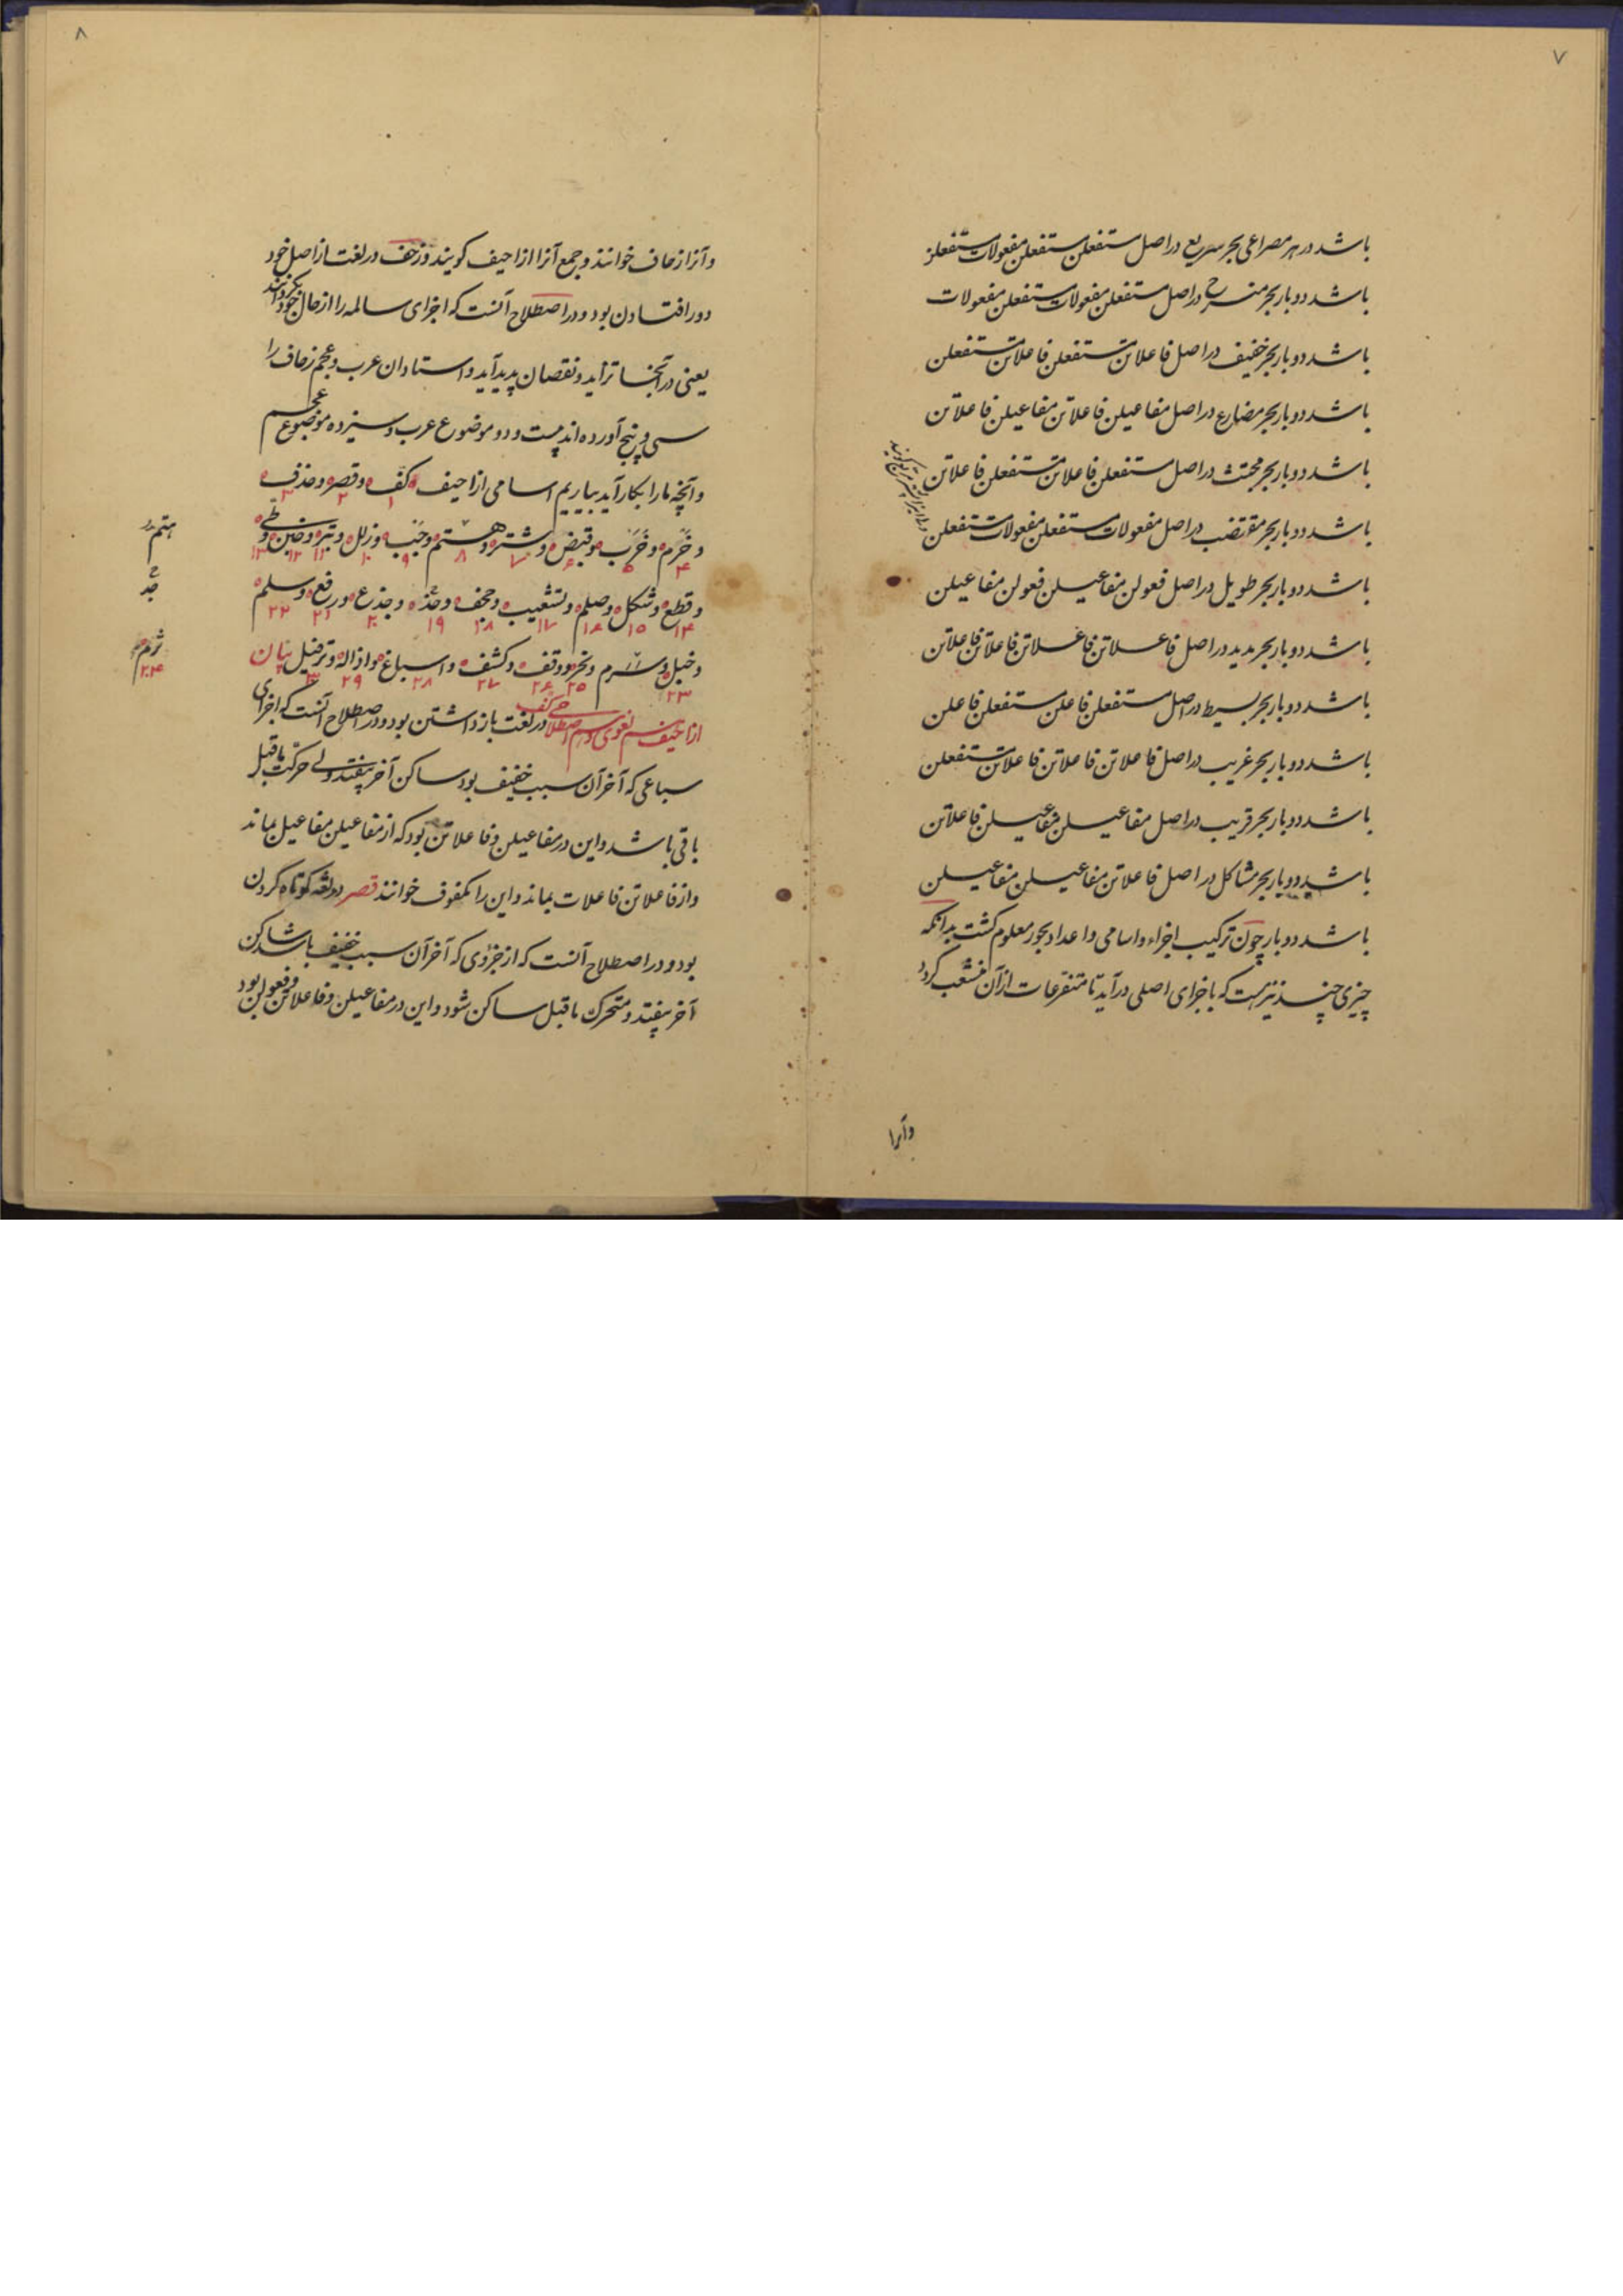 ۷
باشد در هر مصراعی بحر سریع در اصل مستفعلن مستفعلن مفعولات مستفعلن
باشد دوبار بحر منسرح در اصل مستفعلن مفعولات مستفعلن مفعولات
باشد دوبار بحر خفیف در اصل فاعلاتن مستفعلن فاعلاتن مستفعلن
باشد دوبار بحر مضارع در اصل مفاعیلن فاعلاتن مفاعیلن فاعلاتن
باشد دوبار بحر مجتث در اصل مستفعلن فاعلاتن مستفعلن فاعلاتن
باشد دوبار بحر مقتضب در اصل مفعولات مستفعلن مفعولات مستفعلن
باشد دوبار بحر طویل در اصل فعولن مفاعیلن فعولن مفاعیلن
باشد دوبار بحر مدید در اصل فاعلاتن فاعلاتن فاعلاتن فاعلاتن
باشد دوبار بحر بسیط در اصل مستفعلن فاعلن مستفعلن فاعلن
باشد دوبار بحر غریب در اصل فاعلاتن فاعلاتن فاعلاتن مستفعلن
باشد دوبار بحر قریب در اصل مفاعیلن مفاعیلن فاعلاتن
باشد دوبار بحر مشاکل در اصل فاعلاتن مفاعیلن مفاعیلن
باشد دوبار چون ترکیب اجزاء و اسامی و اعداد بحور معلوم کشت بدانکه
چیزی چند نیز هست که باجزای اصلی درآید تا متفرعات از آن منشعب کردد
وآنرا
۸
وآنرا زحاف خوانند و جمع آنرا ازاحیف کویند و زحف در لغت از اصل خود
دور افتادن بود و در اصطلاح آنست که اجزای سالمه را از حال خود بکردانند
یعنی در آنجا تزاید و نقصان پدید آید و استادان عرب و عجم زحاف را
سی و پنج آورده اند بیست و دو موضوع عرب و سیزده موضوع عجم
و آنچه ما را بکار آید بیاریم اسامی ازاحیف کف و قصر و حذف
۱ ۲ ۳
و خرم و خرب و قبض و شتر و هتم و جب و زلل و بتر و خبن و طی
۴ ۵ ۶ ۷ ۸ ۹ ۱۰ ۱۱ ۱۲ ۱۳
هتم
و قطع و شکل و صلم و تشعیب و جحف و حذذ و جذع و رفع و سلم
۱۴ ۱۵ ۱۶ ۱۷ ۱۸ ۱۹ ۲۰ ۲۱ ۲۲
و خبل و سرم و نحر و وقف و کشف و اسباغ و اذاله و ترفیل بیان
۲۳ ۲۵ ۲۶ ۲۷ ۲۸ ۲۹ ۳۰
ثرم
۲۴
ازاحیف رسم لغوی و رسم اصطلاحی کف در لغت بازداشتن بود و در اصطلاح آنست که اجزای
سباعی که آخر آن سبب خفیف بود ساکن آخر بیفتد ولی حرکت ماقبل
باقی باشد و این در مفاعیلن و فاعلاتن بود که از مفاعیلن مفاعیل بماند
و از فاعلاتن فاعلات بماند و این را مکفوف خوانند قصر در لغه کوتاه کردن
بود و در اصطلاح آنست که از جزوی که آخر آن سبب خفیف باشد ساکن
آخر بیفتد و متحرک ماقبل ساکن شود و این در مفاعیلن و فاعلاتن و فعولن بود